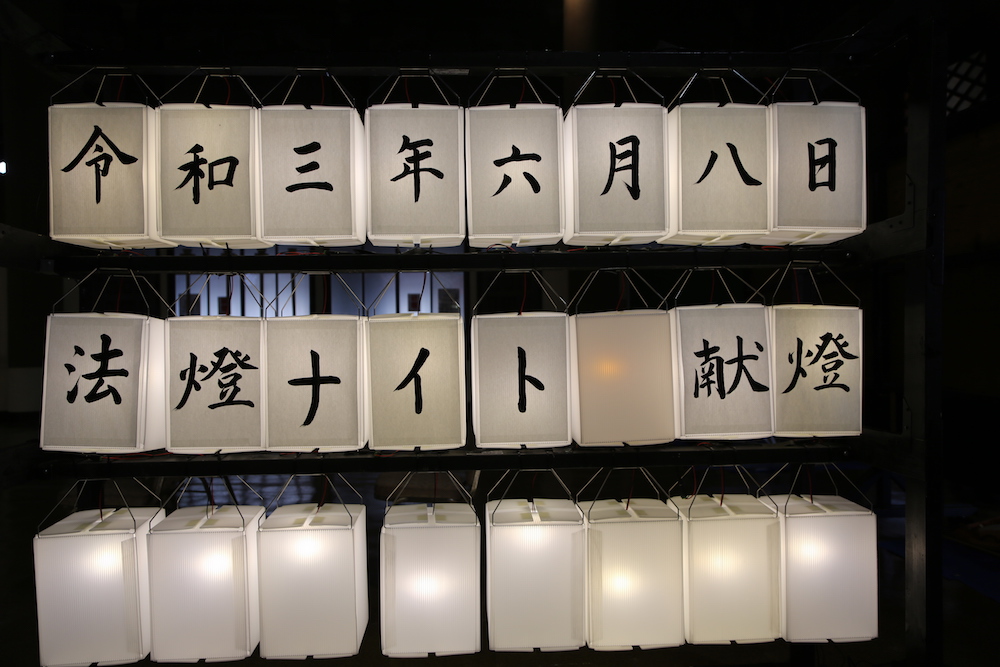 令和三年六月八日
法燈ナイト 献燈